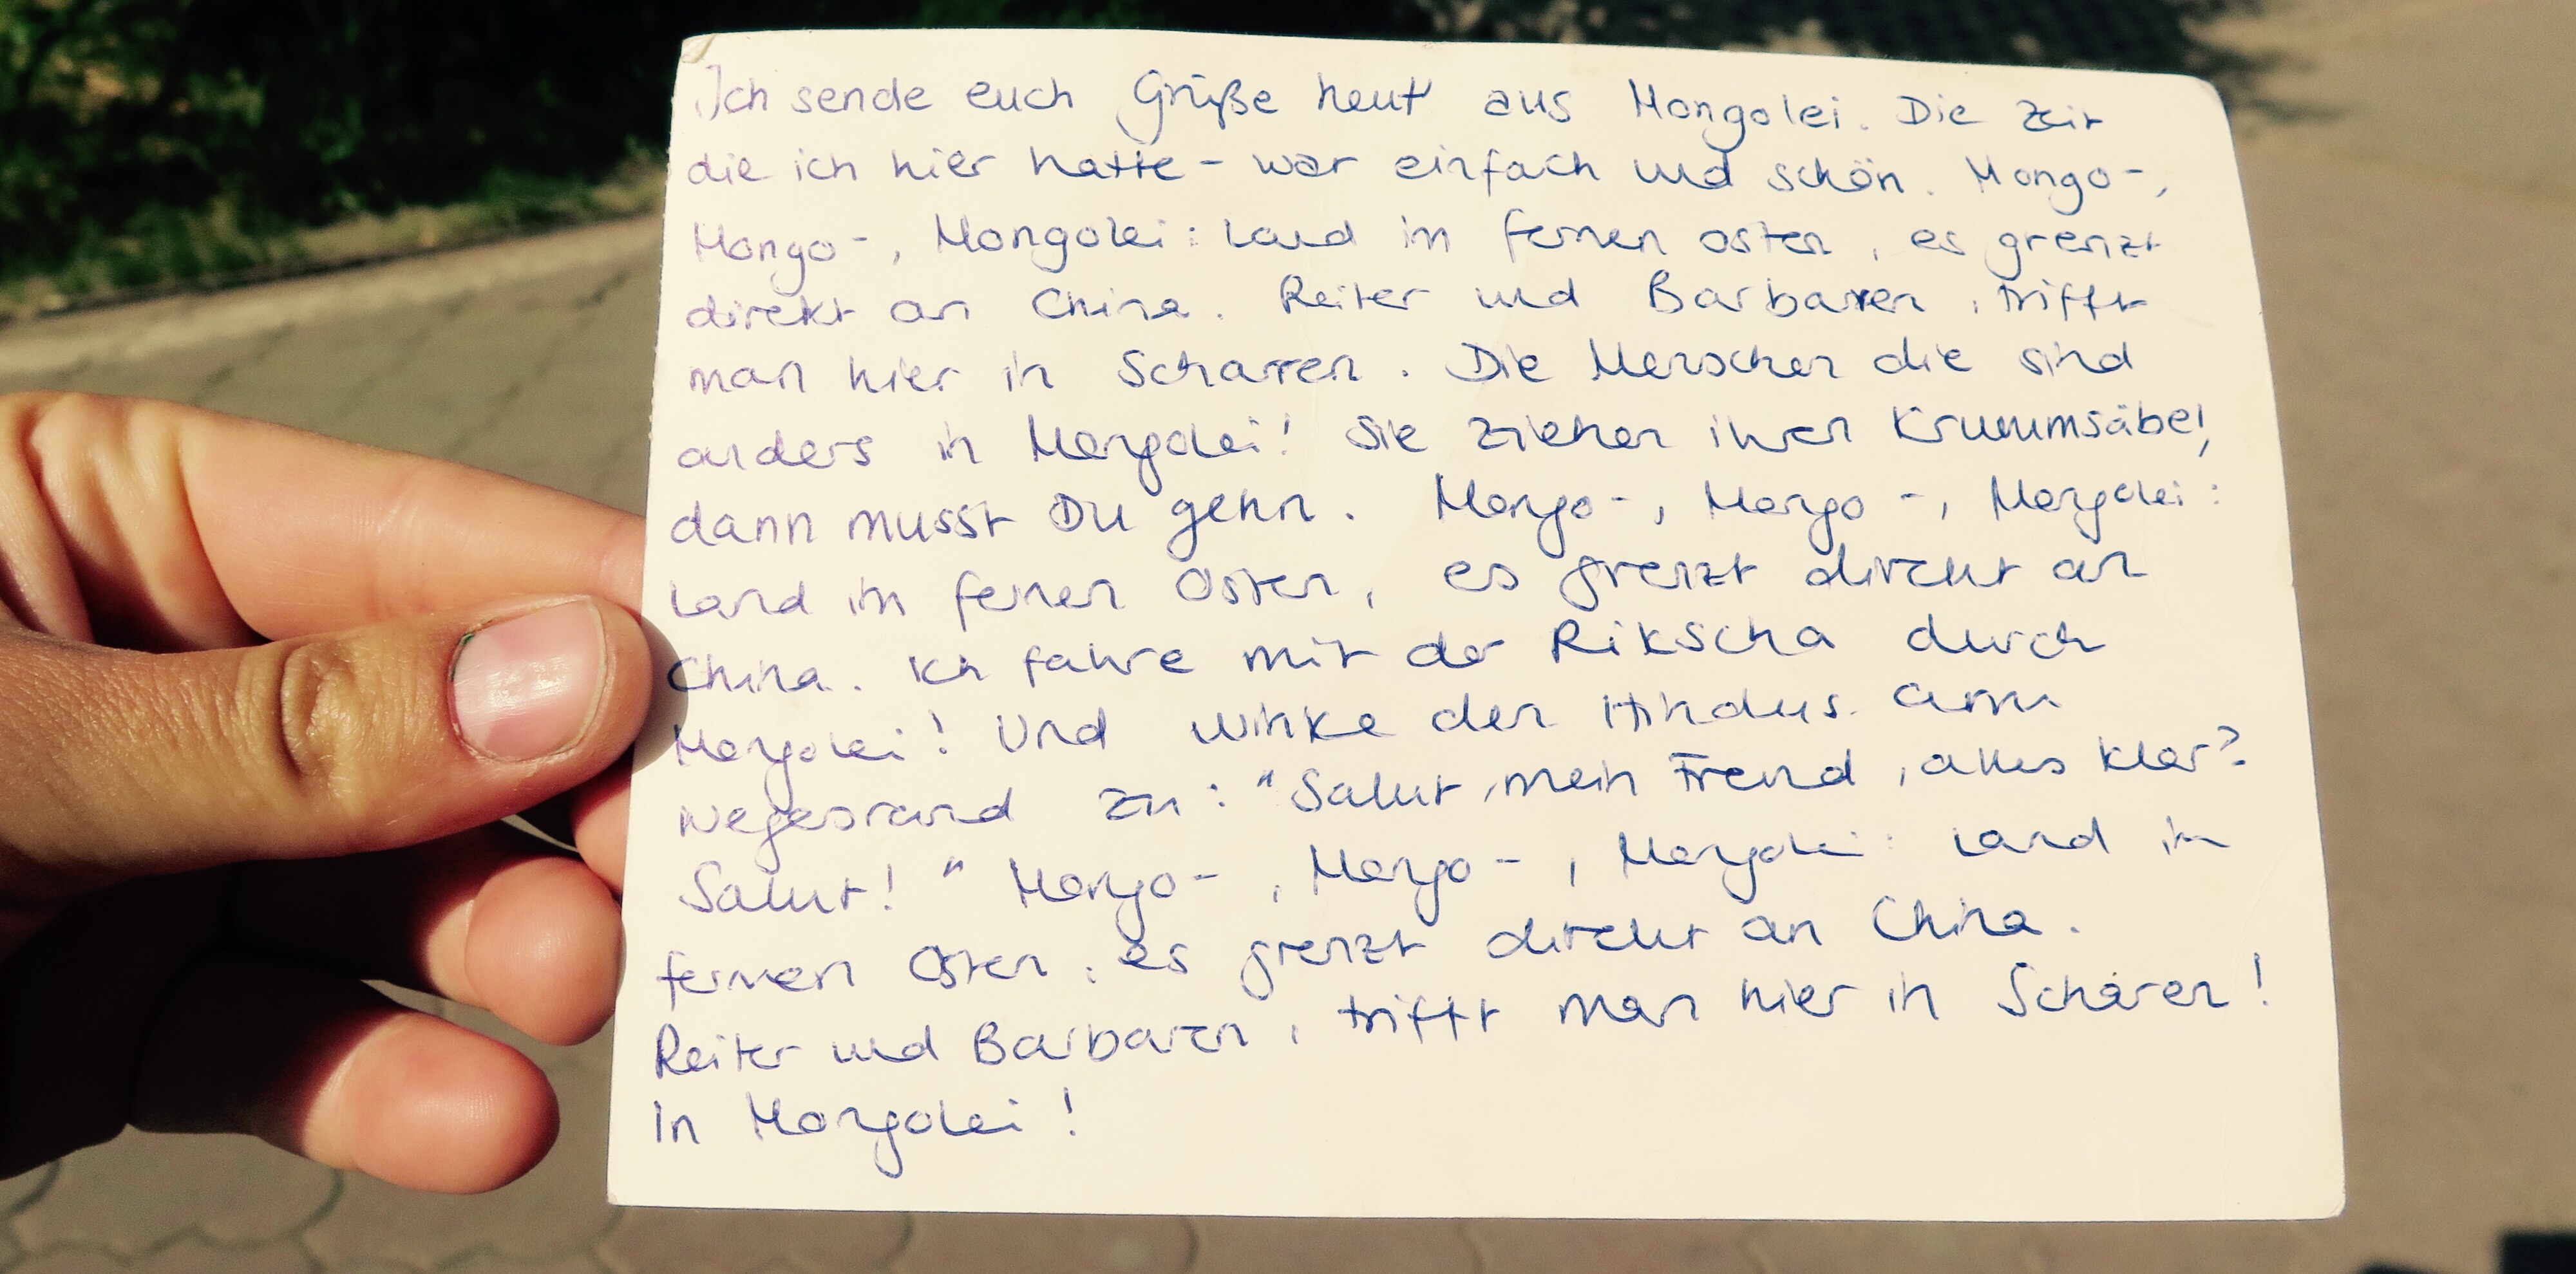 Ich sende euch Grüße heut' aus Mongolei. Die Zeit
die ich hier hatte - war einfach und schön. Mongo-,
Mongo-, Mongolei: Land im fernen Osten, es grenzt
direkt an China. Reiter und Barbaren, trifft
man hier in Scharren. Die Menschen die sind
anders in Mongolei! Sie ziehen ihren Krummsäbel,
dann musst Du gehn. Mongo-, Mongo-, Mongolei:
Land im fernen Osten, es grenzt direkt an
China. Ich fahre mit der Rikscha durch
Mongolei! Und winke den Hindus am
Wegesrand zu: "Salut, mein Freund, alles klar?
Salut!" Mongo-, Mongo-, Mongolei: Land im
fernen Osten, es grenzt direkt an China.
Reiter und Barbaren, trifft man hier in Scharen!
In Mongolei!